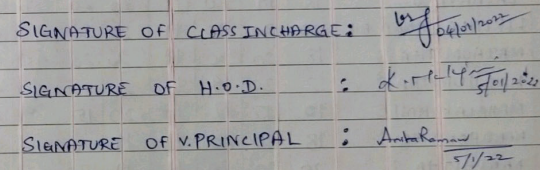 SIGNATURE OF CLASS INCHARGE: 04/01/2022
SIGNATURE OF H.O.D. : 5/01/2022
SIGNATURE OF V.PRINCIPAL : Anita Raman
5/1/22